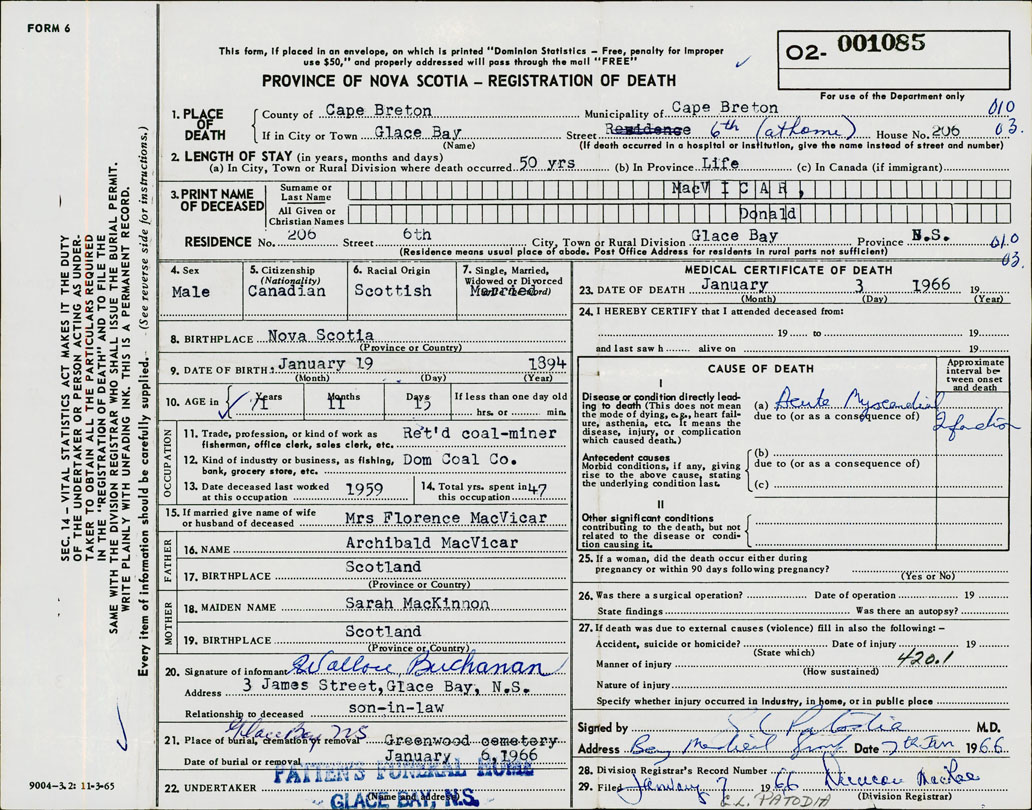 FORM 6
This form, if placed in an envelope, on which is printed "Dominion Statistics – Free, penalty for improper
use $50," and properly addressed will pass through the mail "FREE"
O2- 001085
PROVINCE OF NOVA SCOTIA – REGISTRATION OF DEATH
For use of the Department only
1. PLACE OF DEATH
County of Cape Breton Municipality of Cape Breton 010
If in City or Town Glace Bay Street Residence 6th (at home) House No. 206 03.
(Name) (If death occurred in a hospital or institution, give the name instead of street and number)
2. LENGTH OF STAY (in years, months and days)
(a) In City, Town or Rural Division where death occurred 50 yrs (b) In Province Life (c) In Canada (if immigrant)
3. PRINT NAME OF DECEASED
Surname or Last Name MacVICAR,
All Given or Christian Names Donald
RESIDENCE No. 206 Street 6th City, Town or Rural Division Glace Bay Province N.S. 010
(Residence means usual place of abode. Post Office Address for residents in rural parts not sufficient) 03.
4. Sex
Male
5. Citizenship
(Nationality)
Canadian
6. Racial Origin
Scottish
7. Single, Married,
Widowed or Divorced
(write the word)
Married
8. BIRTHPLACE Nova Scotia
(Province or Country)
9. DATE OF BIRTH: January 19 1894
(Month) (Day) (Year)
10. AGE in Years Months Days If less than one day old
71 11 15 hrs. or min.
OCCUPATION
11. Trade, profession, or kind of work as Ret'd coal-miner
fisherman, office clerk, sales clerk, etc.
12. Kind of industry or business, as fishing, Dom Coal Co.
bank, grocery store, etc.
13. Date deceased last worked
at this occupation 1959
14. Total yrs. spent in
this occupation 47
15. If married give name of wife
or husband of deceased Mrs Florence MacVicar
FATHER
16. NAME Archibald MacVicar
17. BIRTHPLACE Scotland
(Province or Country)
MOTHER
18. MAIDEN NAME Sarah MacKinnon
19. BIRTHPLACE Scotland
(Province or Country)
20. Signature of informant Wallace Buchanan
Address 3 James Street, Glace Bay, N.S.
Relationship to deceased son-in-law
Glace Bay NS
21. Place of burial, cremation or removal Greenwood cemetery
Date of burial or removal January 6, 1966
22. UNDERTAKER PATTEN'S FUNERAL HOME
(Name and address)
GLACE BAY, N.S.
MEDICAL CERTIFICATE OF DEATH
23. DATE OF DEATH January 3 1966 19
(Month) (Day) (Year)
24. I HEREBY CERTIFY that I attended deceased from:
19 to 19
and last saw h alive on 19
CAUSE OF DEATH
Approximate interval between onset and death
I
Disease or condition directly leading
to death (This does not mean
the mode of dying, e.g., heart failure,
asthenia, etc. It means the
disease, injury, or complication
which caused death.)
(a) Acute Myocardial Infarction
due to (or as a consequence of)
Antecedent causes
Morbid conditions, if any, giving
rise to the above cause, stating
the underlying condition last.
(b)
due to (or as a consequence of)
(c)
II
Other significant conditions
contributing to the death, but not
related to the disease or condition
causing it.
25. If a woman, did the death occur either during
pregnancy or within 90 days following pregnancy?
(Yes or No)
26. Was there a surgical operation? Date of operation 19
State findings Was there an autopsy?
27. If death was due to external causes (violence) fill in also the following: –
Accident, suicide or homicide? Date of injury 19
(State which) 420.1
Manner of injury
(How sustained)
Nature of injury
Specify whether injury occurred in Industry, in home, or in public place
Signed by C L Patodia M.D.
Address Bay Medical Group Date 7th Jan 1966
28. Division Registrar's Record Number
29. Filed January 7 1966 Duncan MacRae
(Division Registrar)
C.L. PATODIA
SEC. 14 – VITAL STATISTICS ACT MAKES IT THE DUTY
OF THE UNDERTAKER OR PERSON ACTING AS UNDERTAKER
TO OBTAIN ALL THE PARTICULARS REQUIRED
IN THE "REGISTRATION OF DEATH" AND TO FILE THE
SAME WITH THE DIVISION REGISTRAR WHO SHALL ISSUE THE BURIAL PERMIT.
WRITE PLAINLY WITH UNFADING INK. THIS IS A PERMANENT RECORD.
Every item of information should be carefully supplied. (See reverse side for instructions.)
9004–3.2: 11-3-65